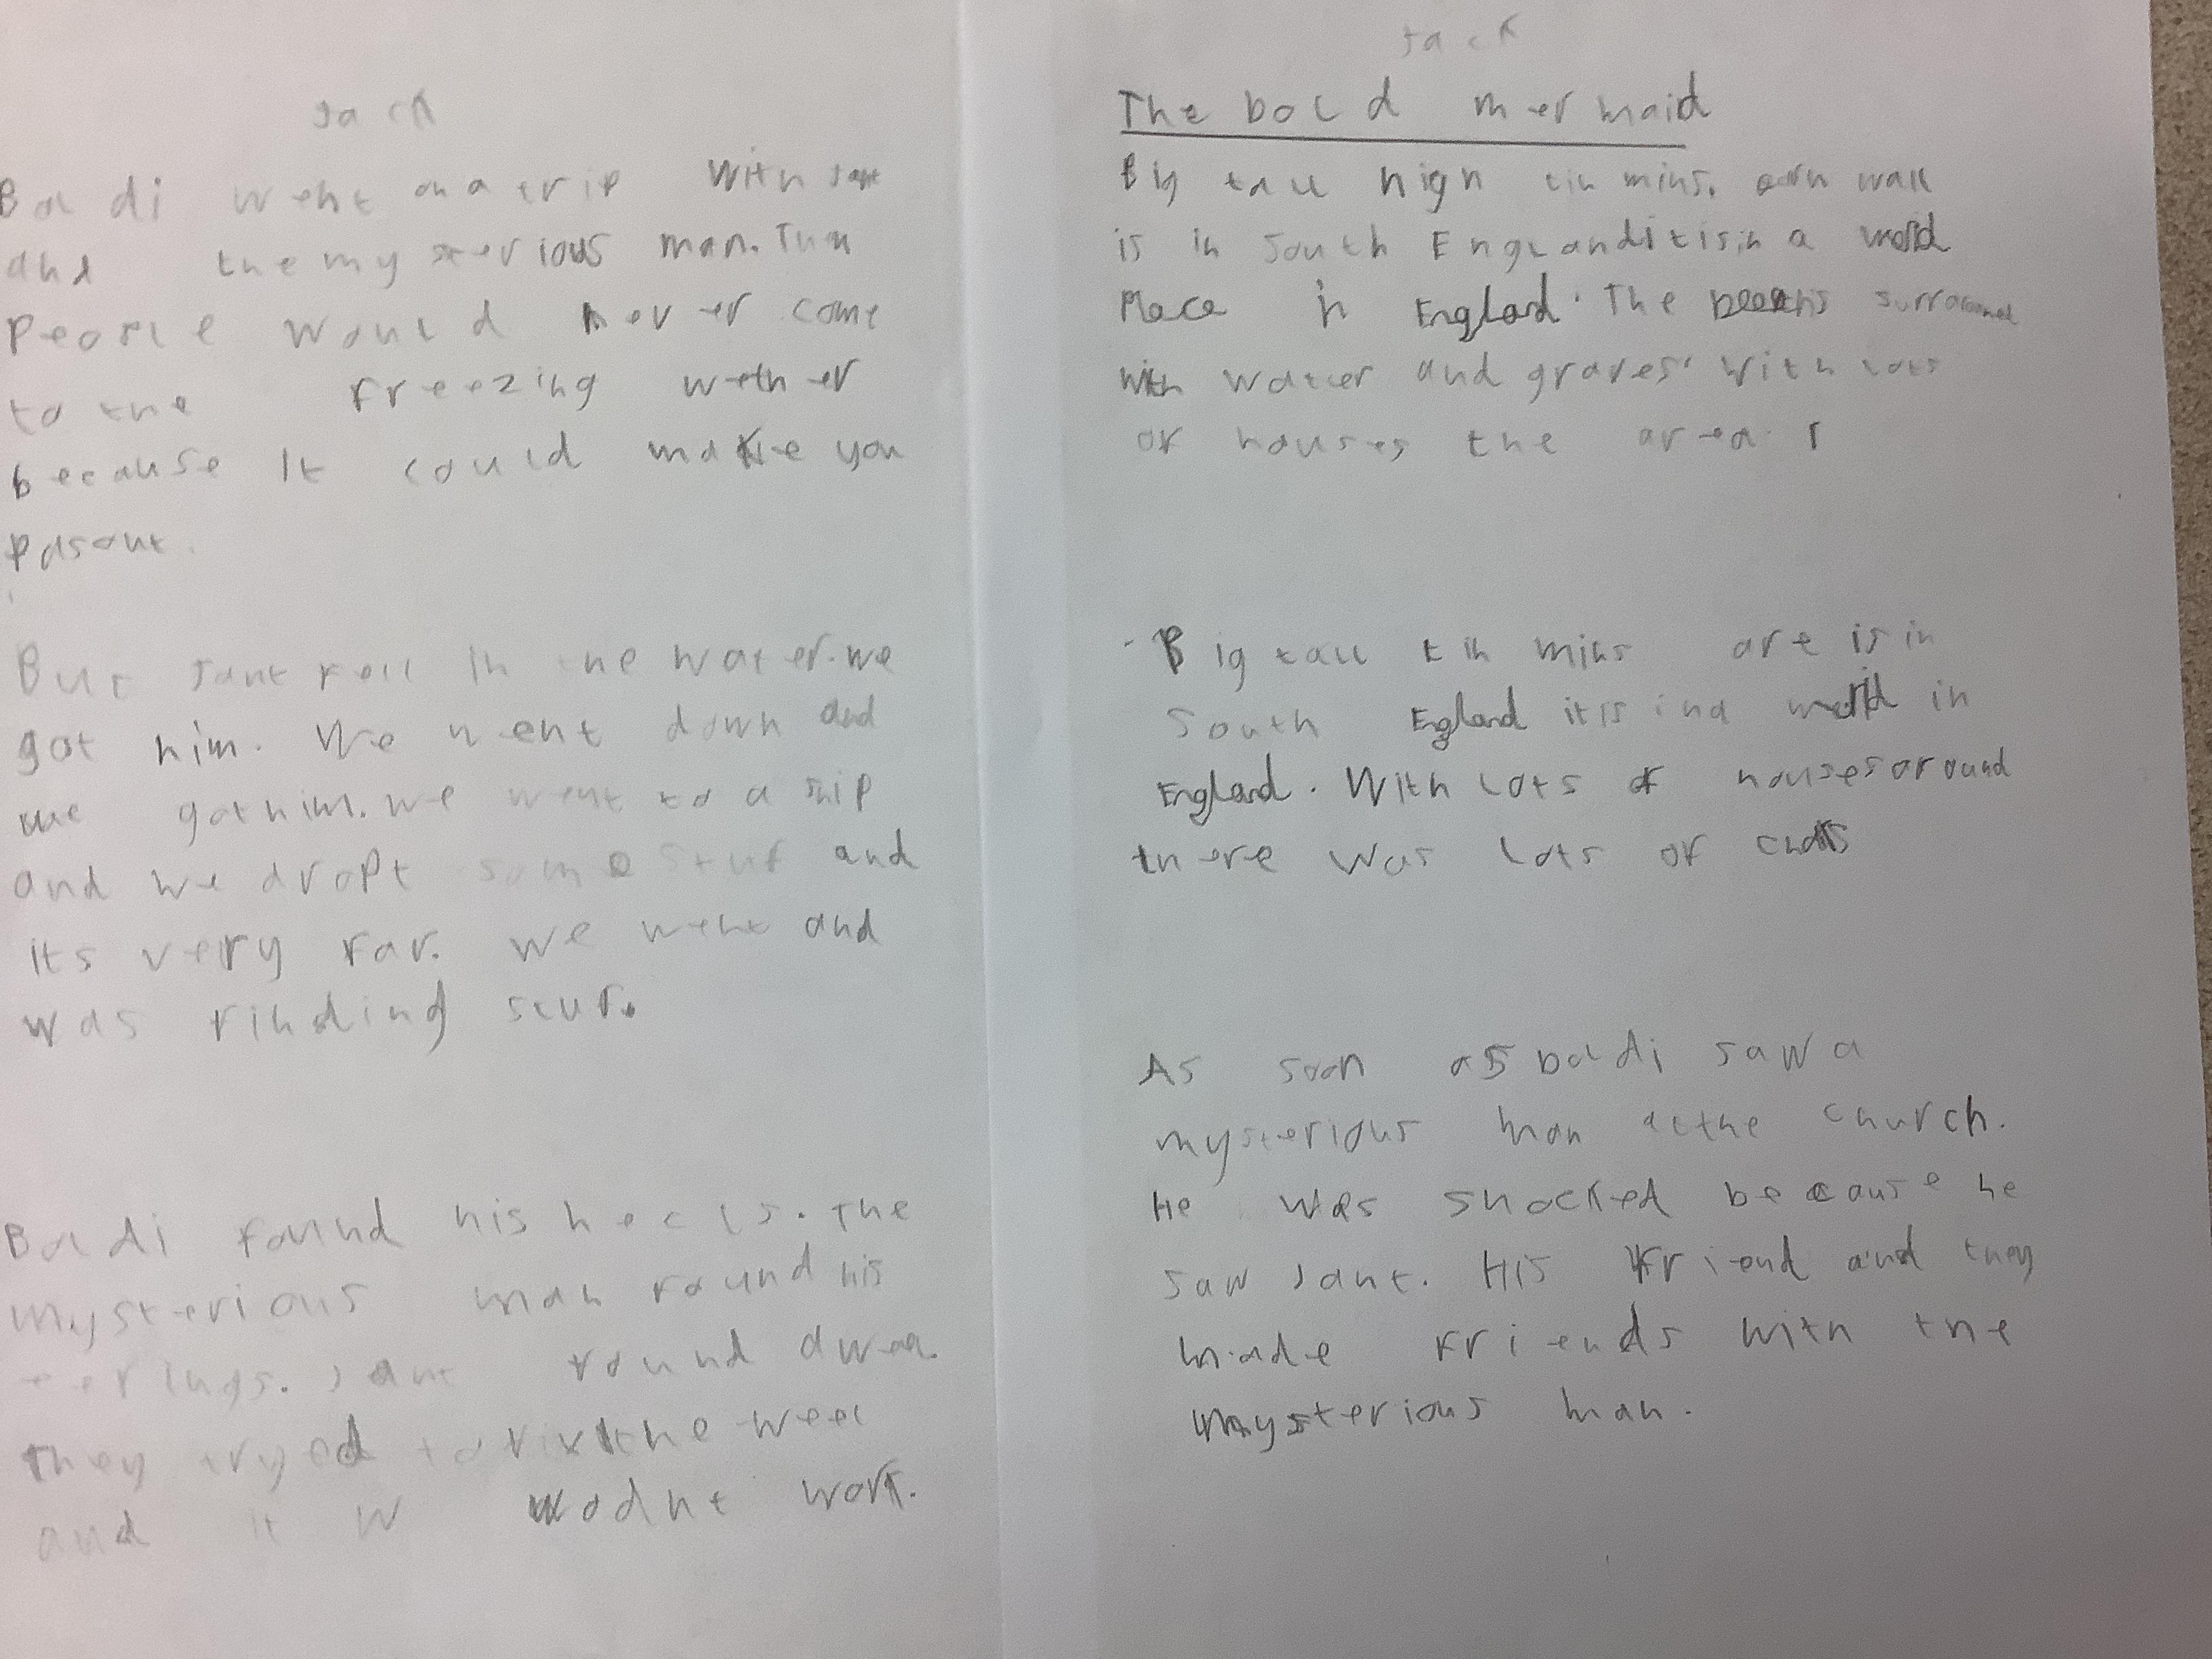 Jack
Baldi went on a trip with Jant
and the mysterious man.
People would never come
to the freezing wether
because It could make you
pasout.
But Jant fell in the water. we
got him. We went down and
we got him. we went to a ship
and we dropt some stuf and
its very far. we went and
was finding stuf.
Baldi found his . The
mysterious man found his
eerings. Jant found
They tryed to fix the weel
and it W wodnt work.
Jack
The bold mermaid
Big tall high tin mins. cornwall
is in South England it is in a
Place in England. The surrouned
with water and graves. With lots
of houses the area
Big tall tin mins are is in
South England it is in a in
England. With lots of houses around
there was lots of
As soon as baldi saw a
mysterious man at the church.
He was shocked because he
saw Jant. His friend and they
made friends with the
mysterious man.